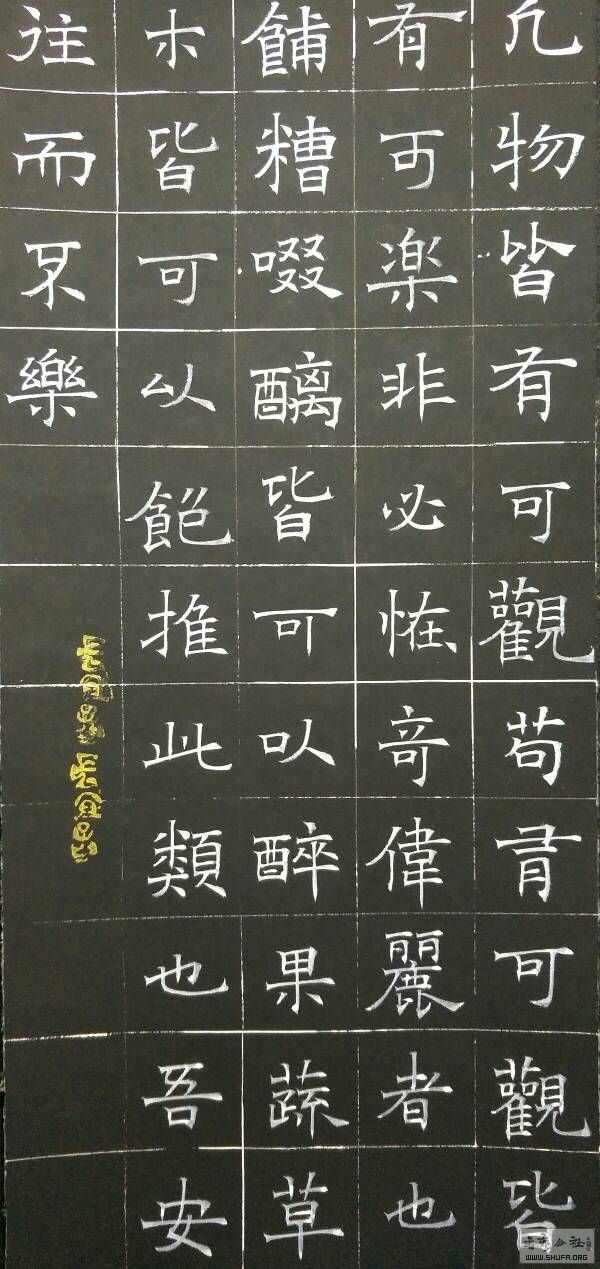 凡物皆有可觀苟有可觀皆
有可楽非必恠竒偉麗者也
餔糟啜醨皆可以醉果蔬草
木皆可以飽推此類也吾安
往而不樂
WWW.SHUFA.ORG